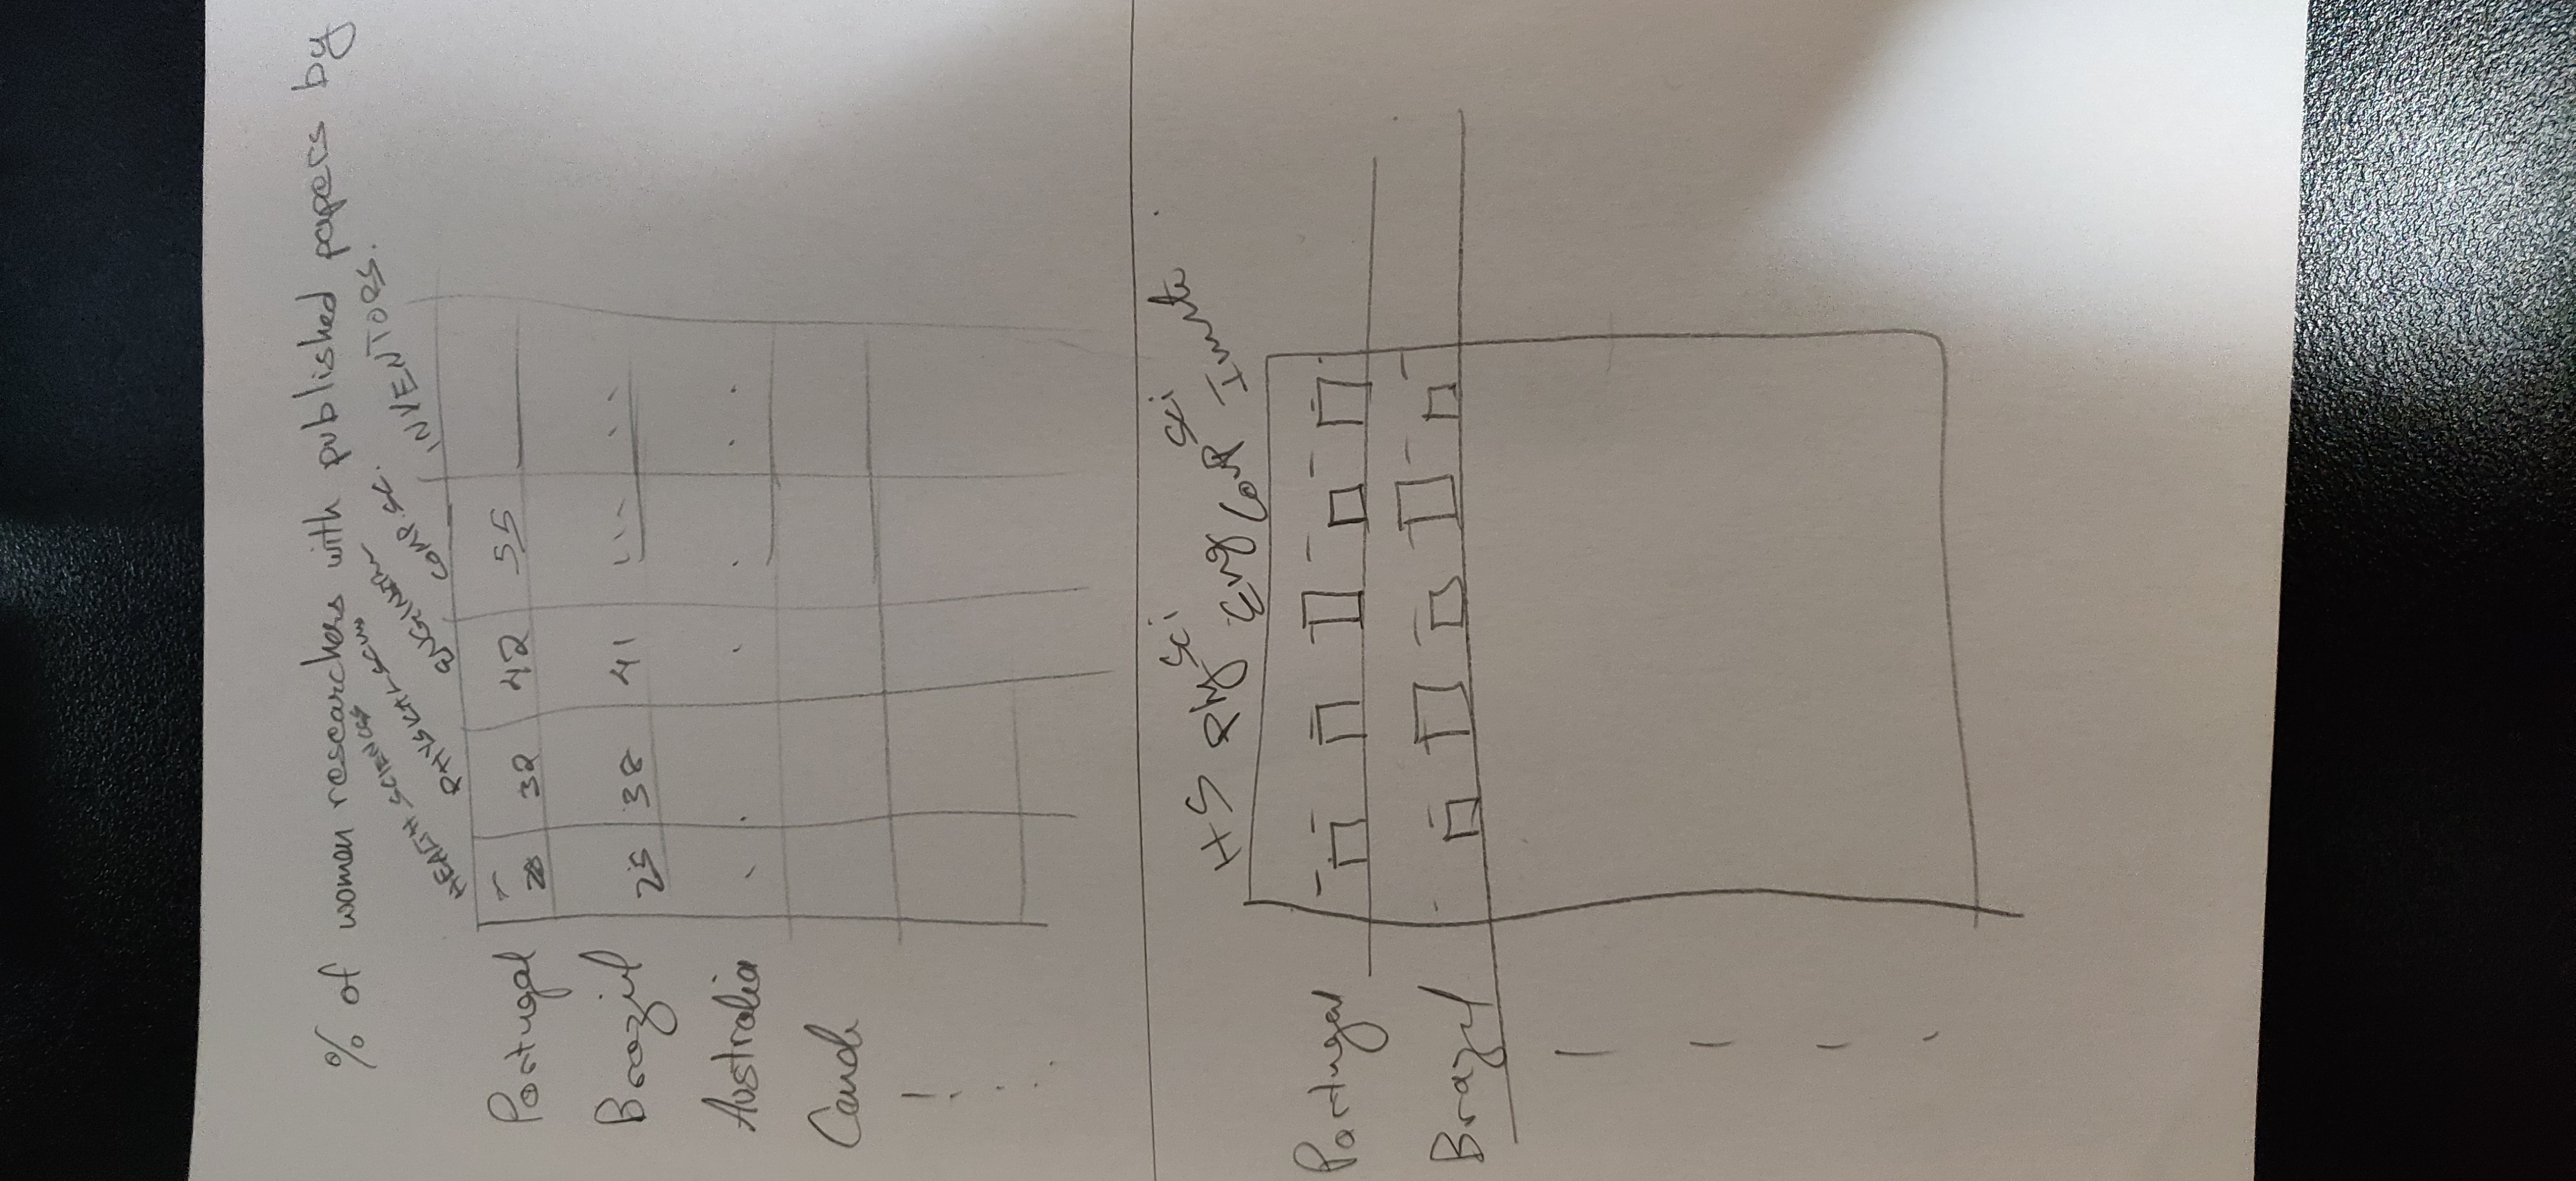 % of women researchers with published papers by
HEALTH SCIENCES PHYSICAL SCIEN ENGINEER COMP. SC. INVENTORS.
Portugal 28 32 42 55
Brazil 25 38 41 ... ..
Australia
Canada
HS Phy Sci Eng Comp Sci
Portugal
Brazil